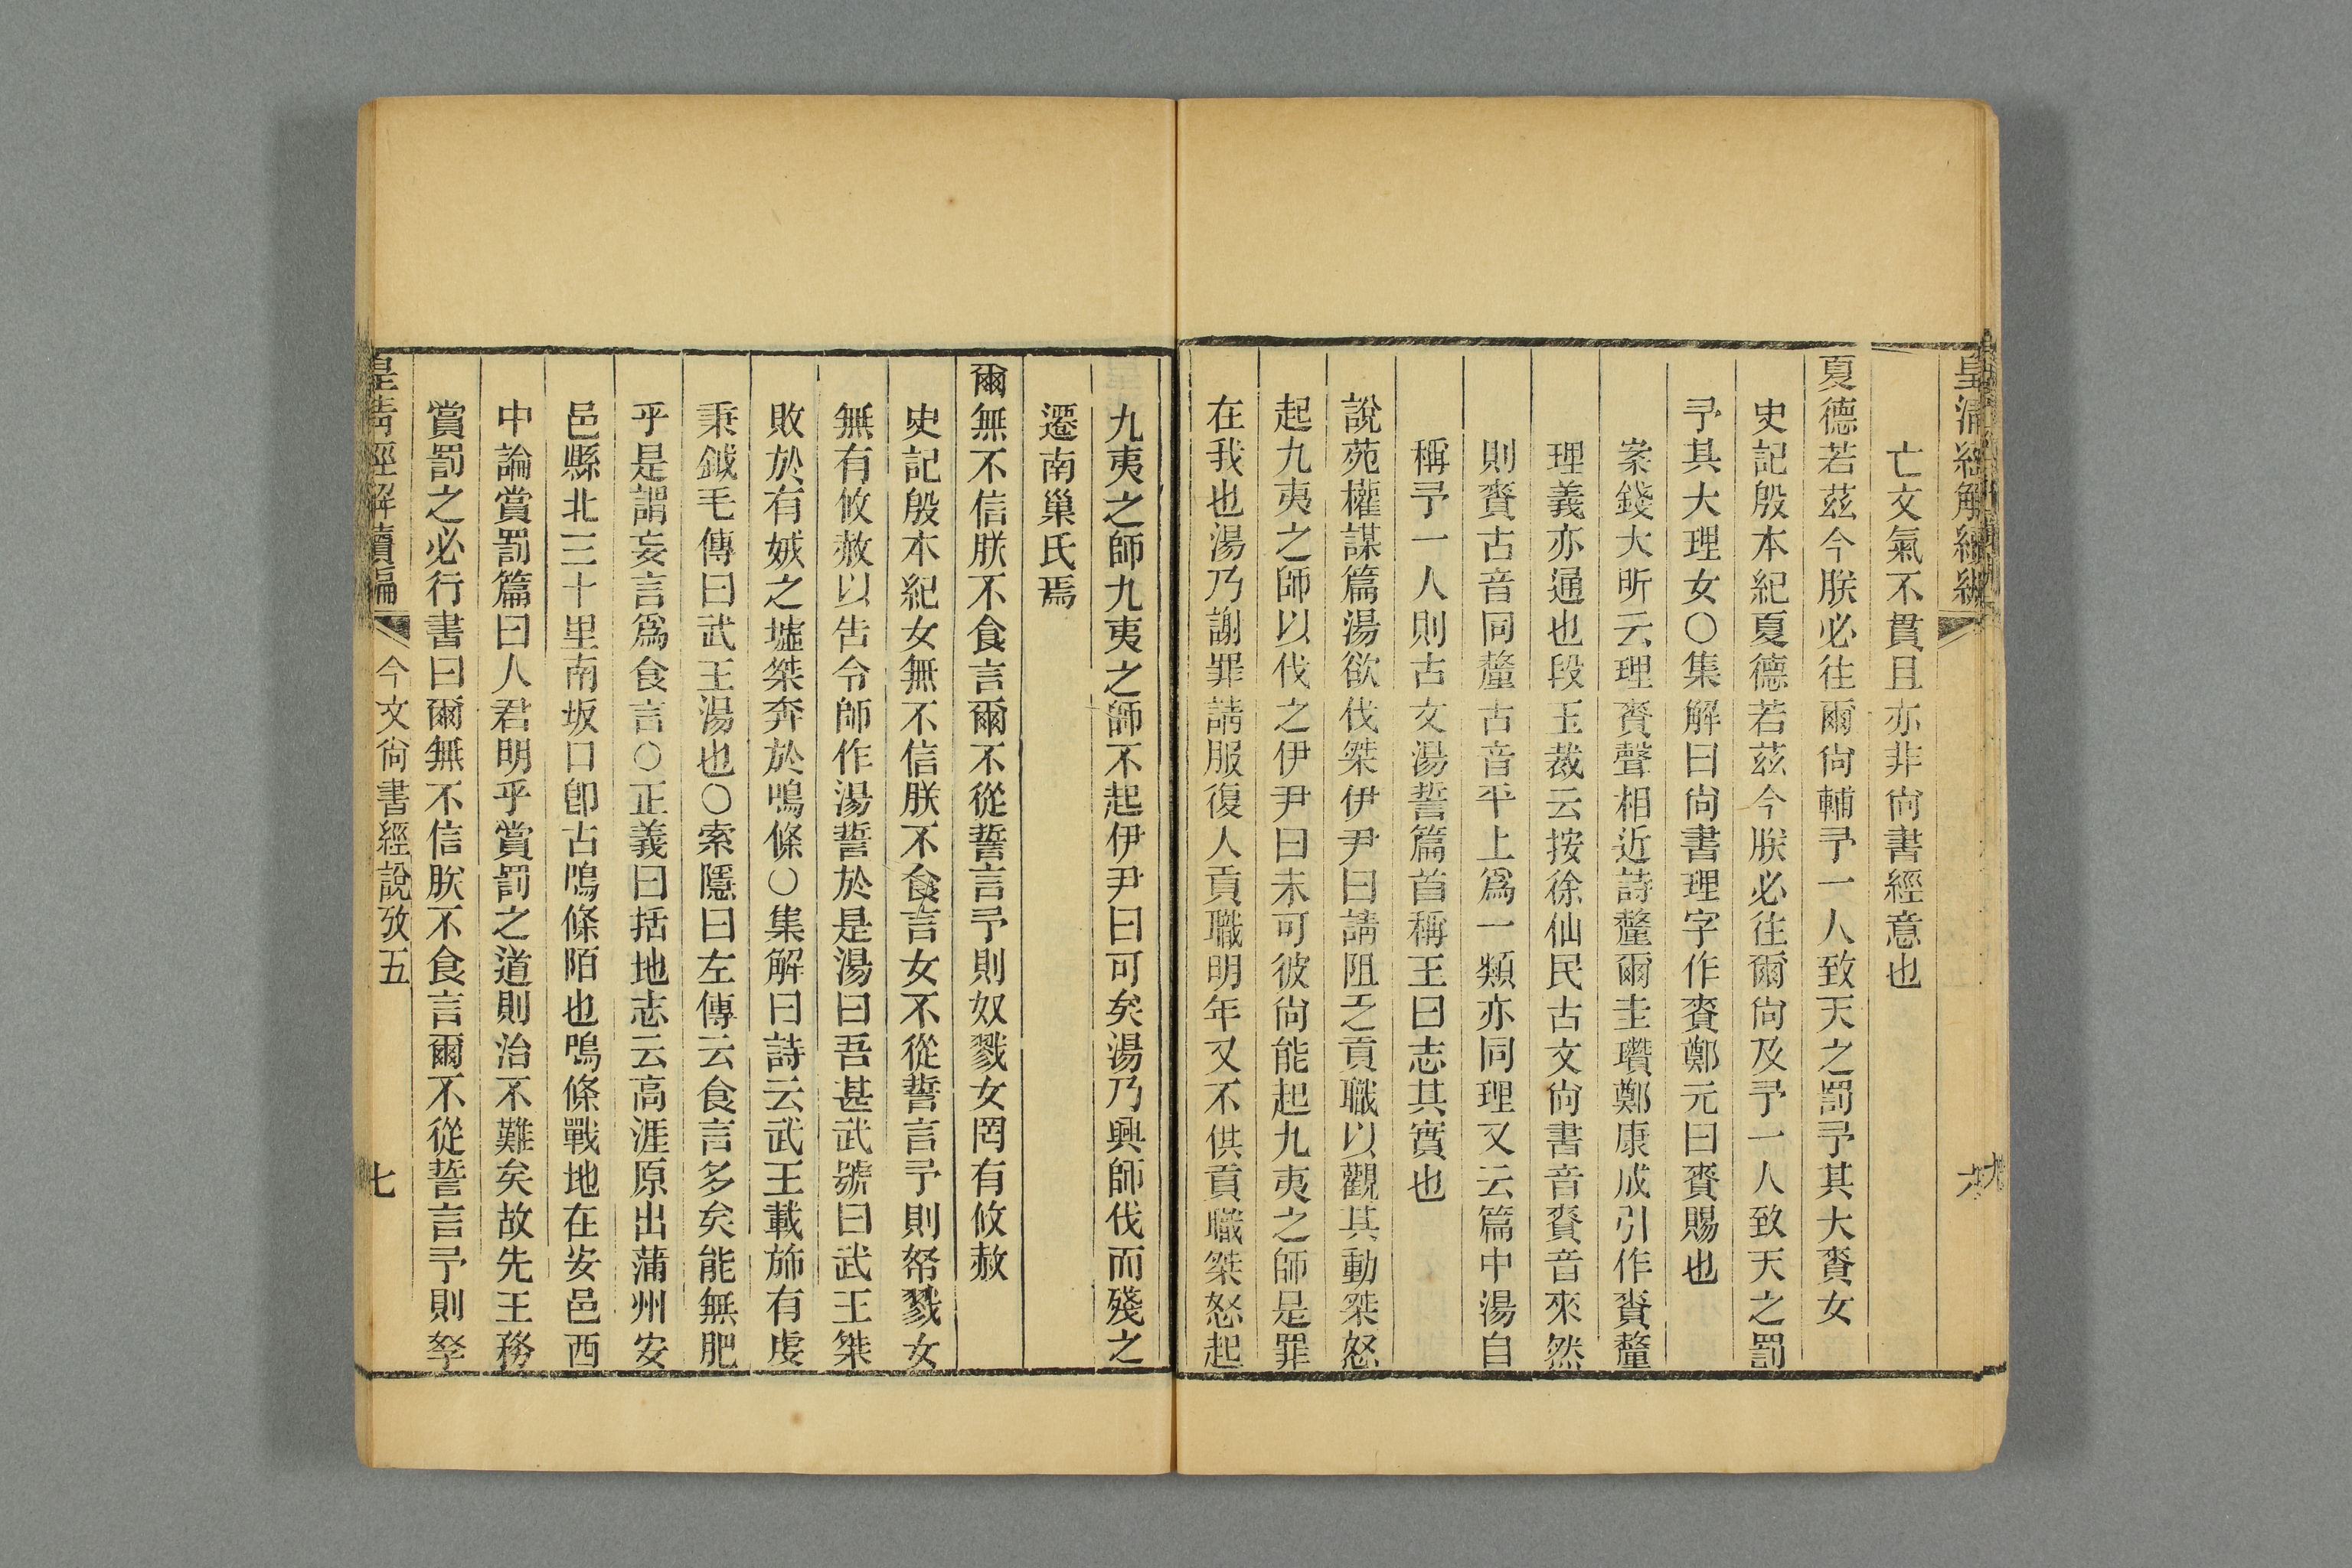 亡文氣不貫且亦非尙書經意也
夏德若茲今朕必往爾尙輔予一人致天之罰予其大賚女
史記殷本紀夏德若茲今朕必往爾尙及予一人致天之罰
予其大理女○集解曰尙書理字作賚鄭元曰賚賜也
案錢大昕云理賚聲相近詩釐爾圭瓚鄭康成引作賚釐
理義亦通也段玉裁云按徐仙民古文尙書音賚音來然
則賚古音同釐古音平上爲一類亦同理又云篇中湯自
稱予一人則古文湯誓篇首稱王曰志其實也
說苑權謀篇湯欲伐桀伊尹曰請阻乏貢職以觀其動桀怒
起九夷之師以伐之伊尹曰未可彼尙能起九夷之師是罪
在我也湯乃謝罪請服復入貢職明年又不供貢職桀怒起
九夷之師九夷之師不起伊尹曰可矣湯乃興師伐而殘之
遷南巢氏焉
爾無不信朕不食言爾不從誓言予則奴戮女罔有攸赦
史記殷本紀女無不信朕不食言女不從誓言予則帑戮女
無有攸赦以告令師作湯誓於是湯曰吾甚武號曰武王桀
敗於有娀之墟桀奔於鳴條○集解曰詩云武王載斾有虔
秉鉞毛傳曰武王湯也○索隱曰左傳云食言多矣能無肥
乎是謂妄言爲食言○正義曰括地志云高涯原出蒲州安
邑縣北三十里南坂口卽古鳴條陌也鳴條戰地在安邑西
中論賞罰篇曰人君明乎賞罰之道則治不難矣故先王務
賞罰之必行書曰爾無不信朕不食言爾不從誓言予則孥
皇淸經解續編
今文尙書經說攷五
七